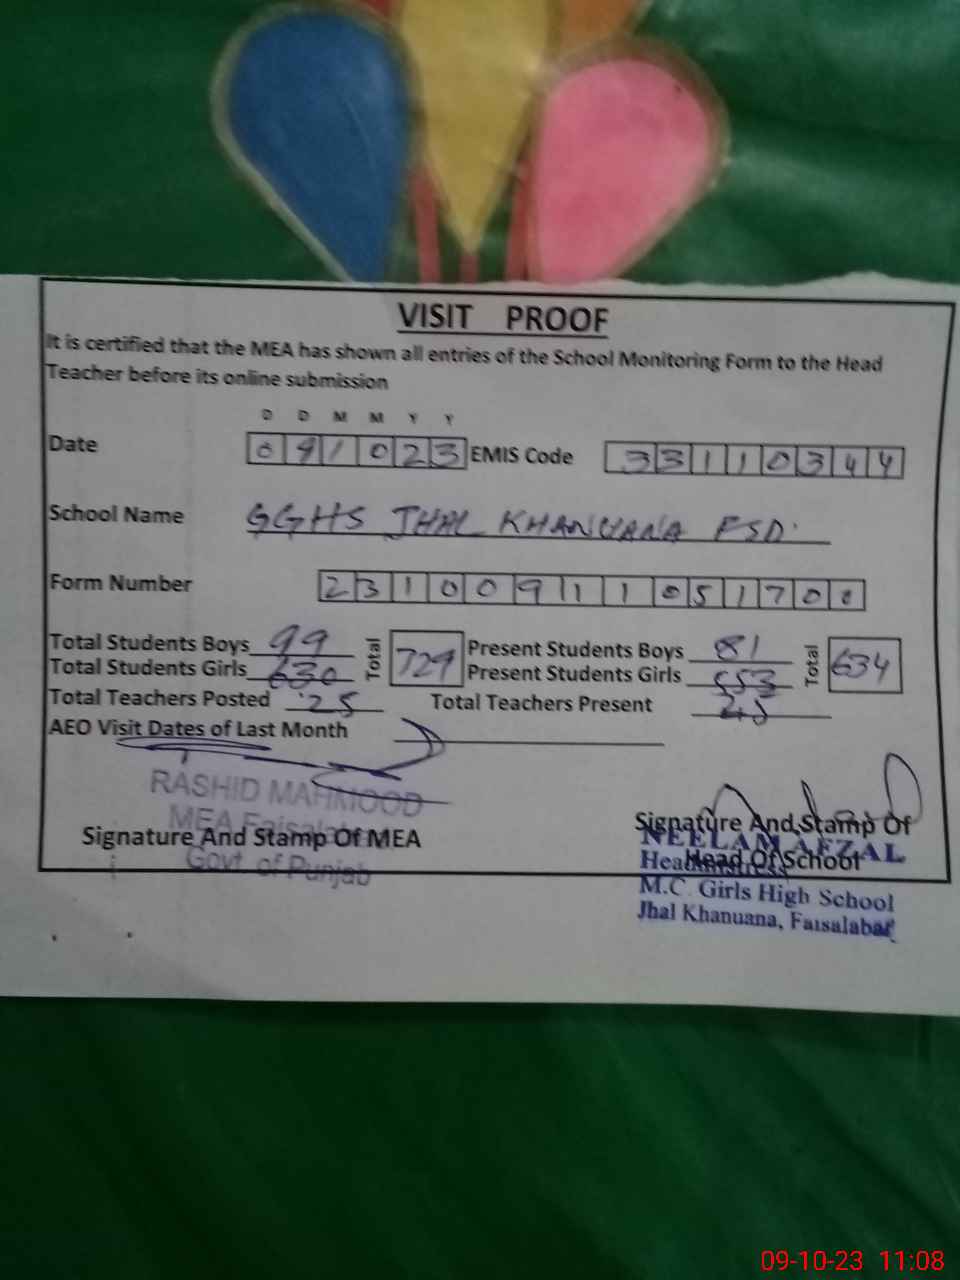 VISIT PROOF
It is certified that the MEA has shown all entries of the School Monitoring Form to the Head
Teacher before its online submission
D D M M Y Y
Date 091023 EMIS Code 33110344
School Name GGHS JHAL KHANUANA FSD.
Form Number 231009110517
Total Students Boys 99 Total 729 Present Students Boys 81 Total 634
Total Students Girls 630 Present Students Girls 553
Total Teachers Posted 25 Total Teachers Present
AEO Visit Dates of Last Month
RASHID MAHMOOD
MEA Faisalabad
Signature And Stamp Of MEA
Govt. of Punjab
Signature And Stamp Of
NEELAM AFZAL
Head Of School
Headmistress
M.C. Girls High School
Jhal Khanuana, Faisalabad
09-10-23 11:08